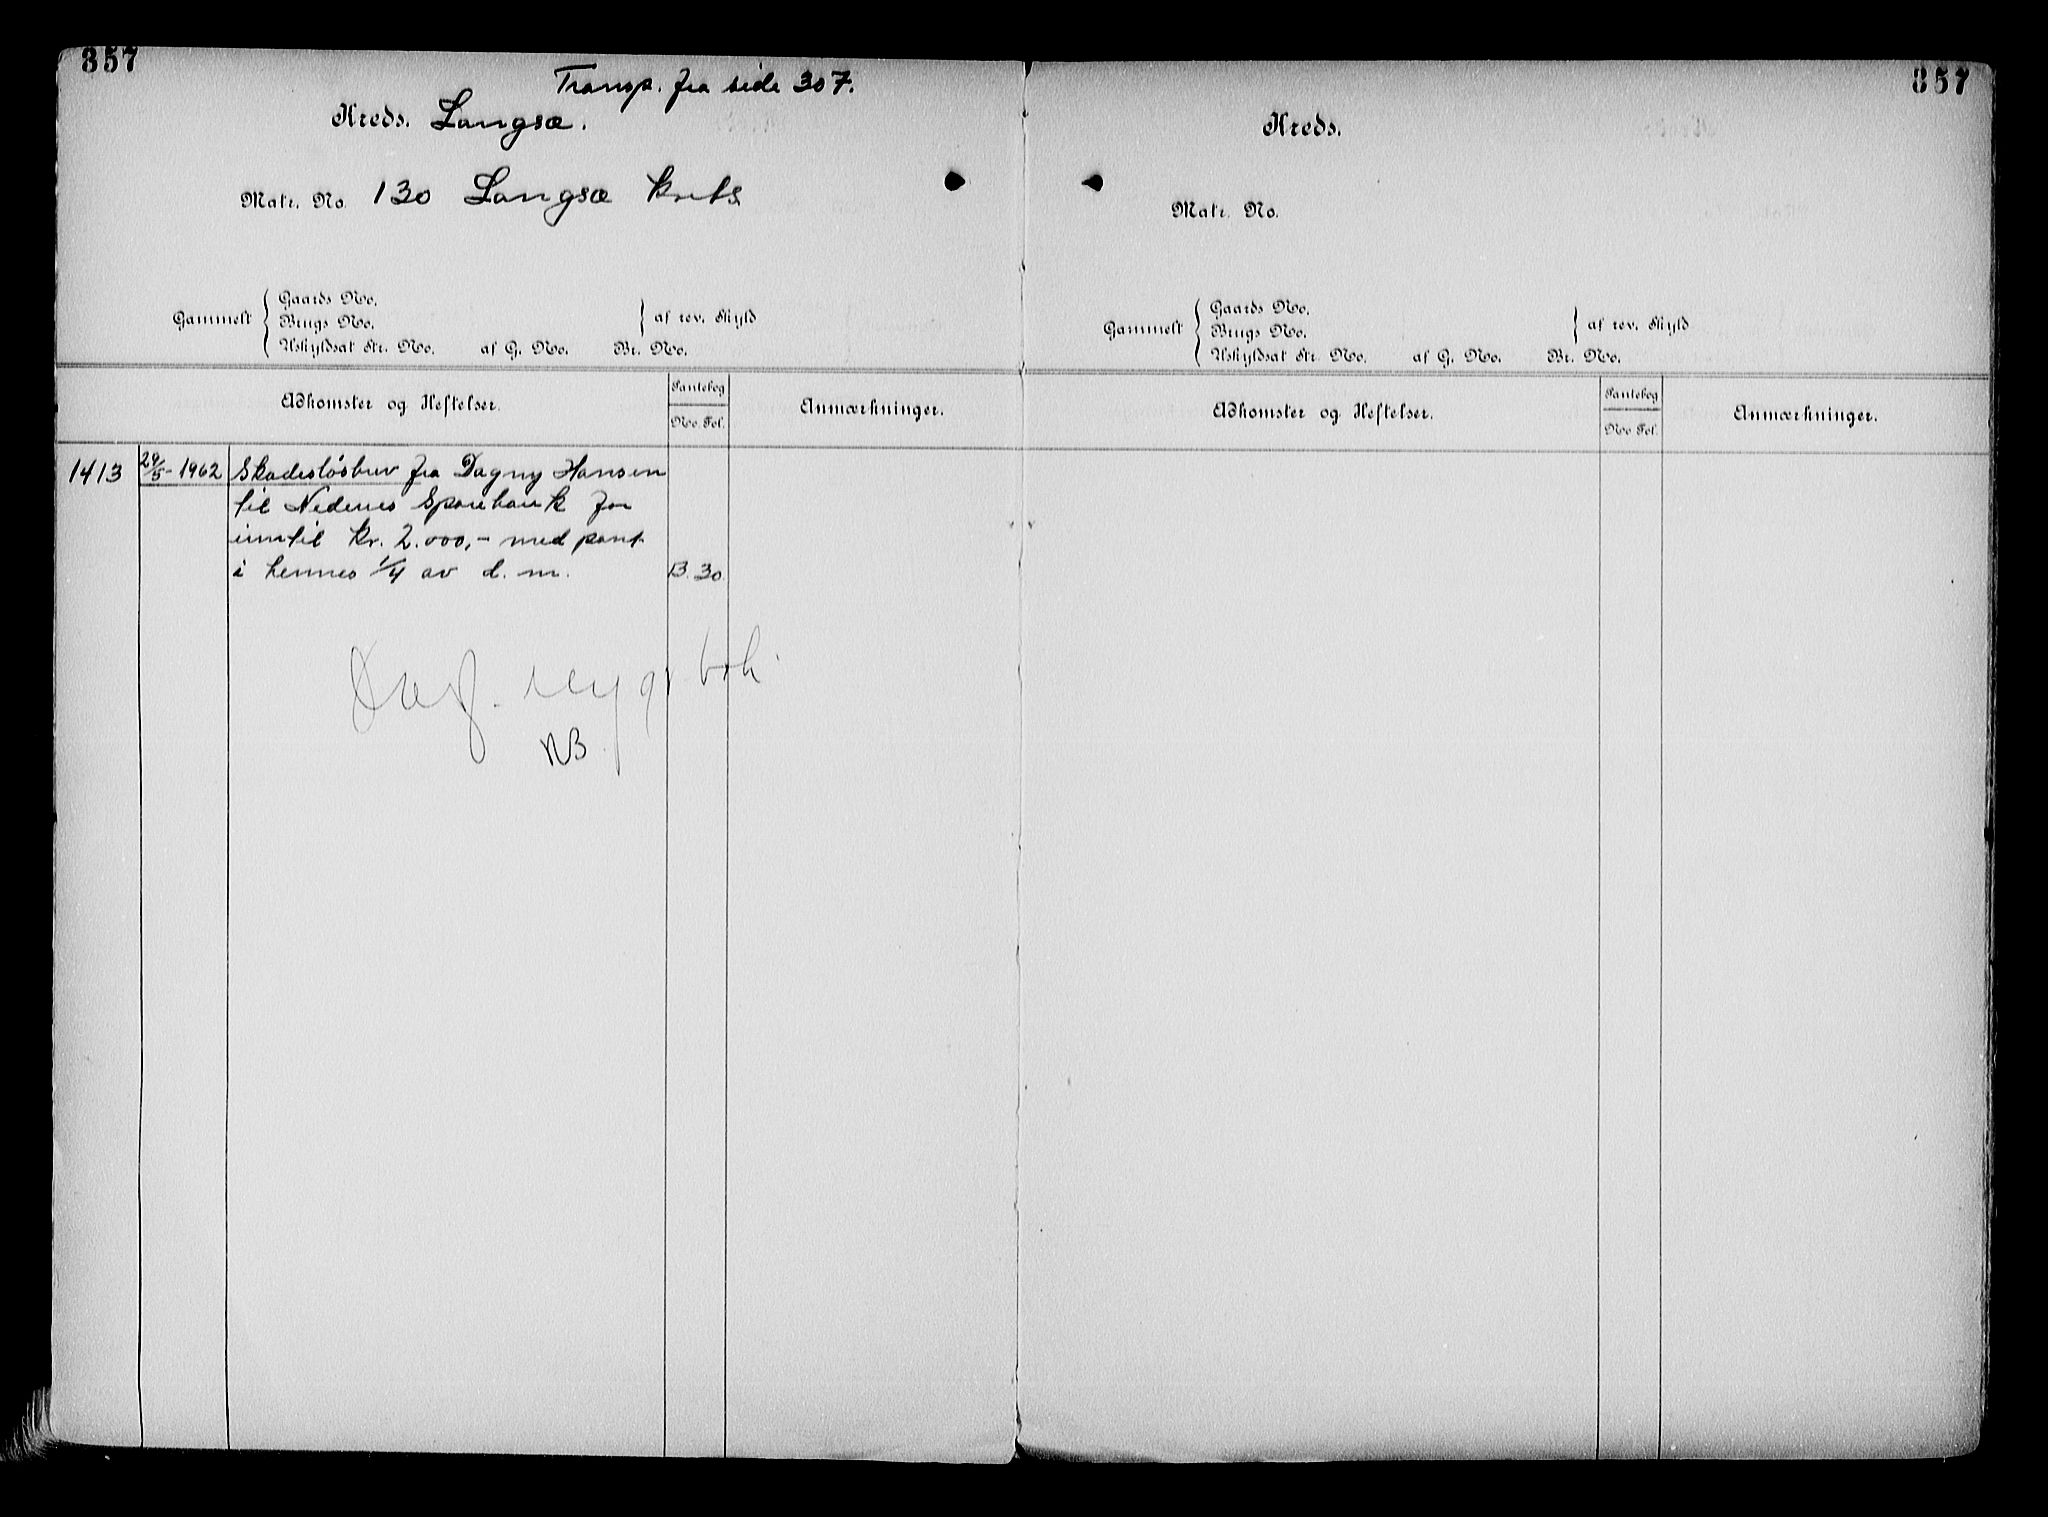 357
Transp. fra side 307.
Kreds. Langsæ.
Matr. No. 130 Langsæ krets
Gammelt
Gaards No.
Brugs No.
Uskyldsat Str. No. af G. No. Br. No.
af rev. Skyld
Adkomster og Heftelser.
Pantebog
No. Fol.
Anmærkninger.
1413 29/5-1962 Skadesløsbrev fra Dagny Hansen
til Nedenes Sparebank for
inntil kr. 2.000,- med pant
i hennes 1/4 av d. m. B. 30
NB
357
Kreds.
Matr. No.
Gammelt
Gaards No.
Brugs No.
Uskyldsat Str. No. af G. No. Br. No.
af rev. Skyld
Adkomster og Heftelser.
Pantebog
No. Fol.
Anmærkninger.